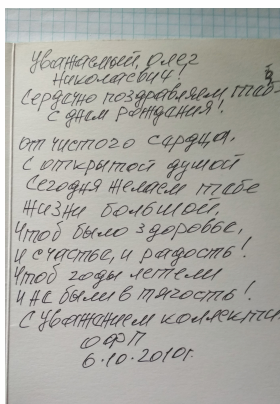 Уважаемый, Олег
Николаевич!
Сердечно поздравляем
с днем рождания!
от чистого сердца,
с открытой душой
Сегодня желаем табе
жизни большой,
Чтоб было здоровье,
и счастье, и радость!
Чтоб годы летели
и на были в тягость!
С уважанием коллекти
ОФП
6.10.2010г.